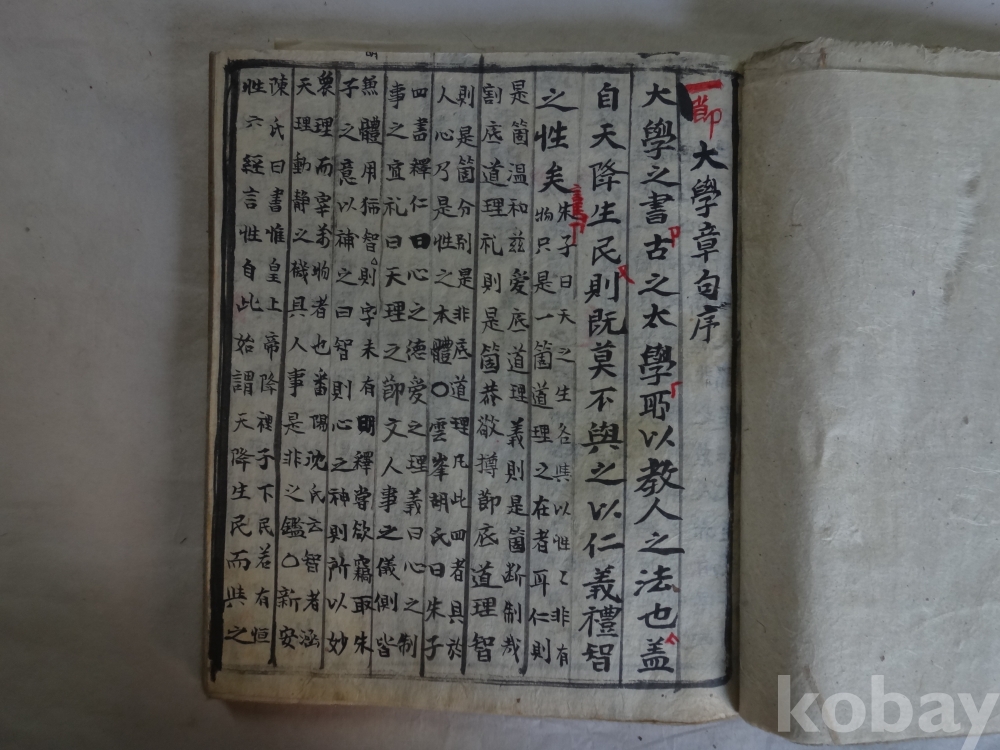 一節
大學章句序
大學之書古之太學所以教人之法也盖
自天降生民則既莫不與之以仁義禮智
之性矣
朱子曰天之生各與以性〻非有
物只是一箇道理之在者耳仁則
是箇溫和兹愛底道理義則是箇断制裁
割底道理礼則是箇恭敬撙節底道理智
則是箇分別是非底道理凡此四者具於
人心乃是性之本體〇雲峯胡氏曰朱子
四書釋仁曰心之德愛之理義曰心之制
事之宜礼曰天理之節文人事之儀側皆
無體用獨智則字未有明釋嘗欲竊取朱
子之意以補之曰智則心之神則所以妙
衆理而宰萬物者也番陽沈氏云智者涵
天理動静之機具人事是非之鑑〇新安
陳氏曰書惟皇上帝降裡子下民若有恒
性六經言性自此始謂天降生民而與之
kobay